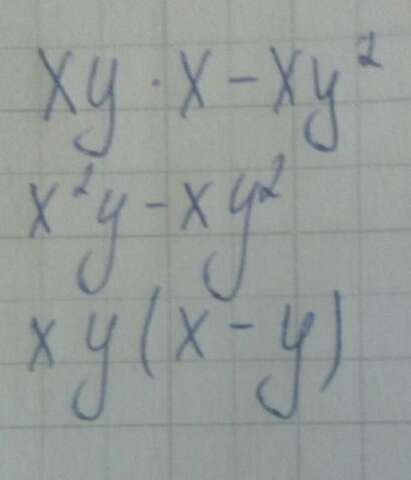 xy · x – xy²
x²y – xy²
xy(x – y)